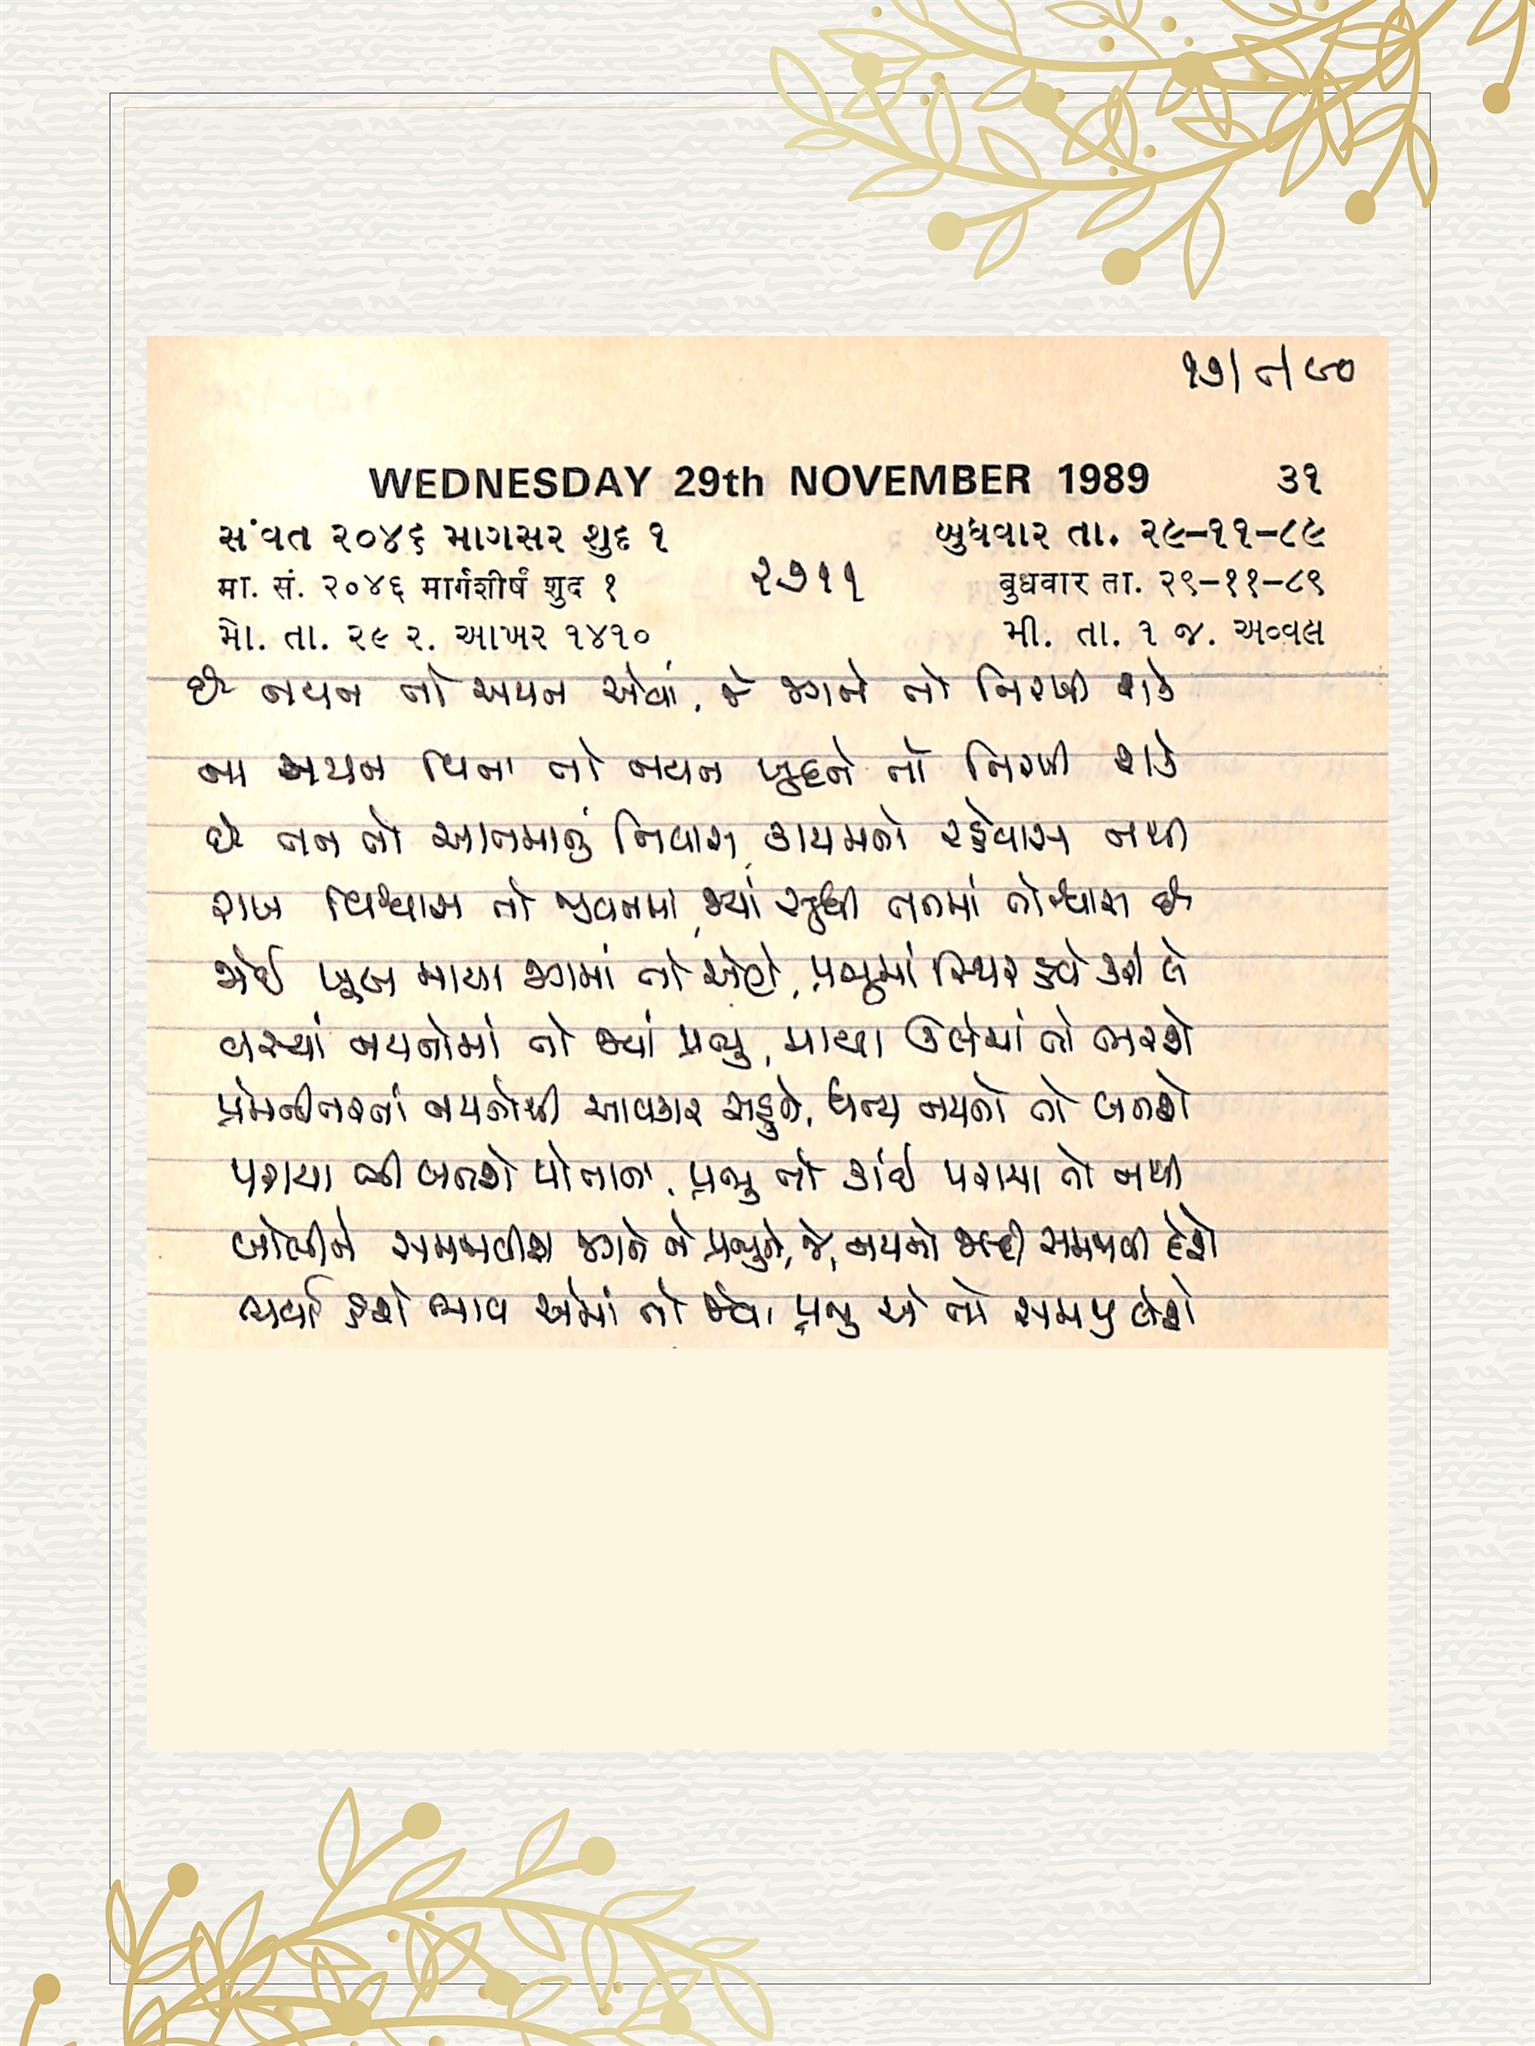 ૧૭/ ૮/ ૯૦
WEDNESDAY 29th NOVEMBER 1989 ૩૧
સંવત ૨૦૪૬ માગસર શુદ ૧ બુધવાર તા. ૨૯-૧૧-૮૯
मा. सं. २०४६ मार्गशीर्ष शुद १ ૨૭૧૧ बुधवार ता. २९-११-८९
મો. તા. ૨૯ ર. આખર ૧૪૧૦ મી. તા. ૧ જ. અવ્વલ
છે નયન તો અયન એવાં, જે જગને તો નિરખી શકે
ના અયન વિના તો નયન ખુદને તો નિરખી શકે
છે તન તો આતમાનું નિવાસ, કાયમનો રહેવાસ નથી
રાખ વિશ્વાસ તો જીવનમાં, જ્યાં સુધી તનમાં તો શ્વાસ છે
જોઈ ખૂબ માયા જગમાં તો એણે, પ્રભુમાં સ્થિર હવે કરી લે
વસ્યાં નયનોમાં તો જ્યાં પ્રભુ, માયા ઉલેચાં તો ભરશે
પ્રેમનીતરતાં નયનોથી આવકાર સહુને, ધન્ય નયનો તો બનશે
પરાયા ભી બનશે પોતાના, પ્રભુ તો કાંઈ પરાયા તો નથી
બોલીને સમજાવીશ જગને ને પ્રભુને, જે, નયનો જલ્દી સમજાવી દેશે
ભર્યા હશે ભાવ એમાં તો જેવા પ્રભુ એ તો સમજી લેશે